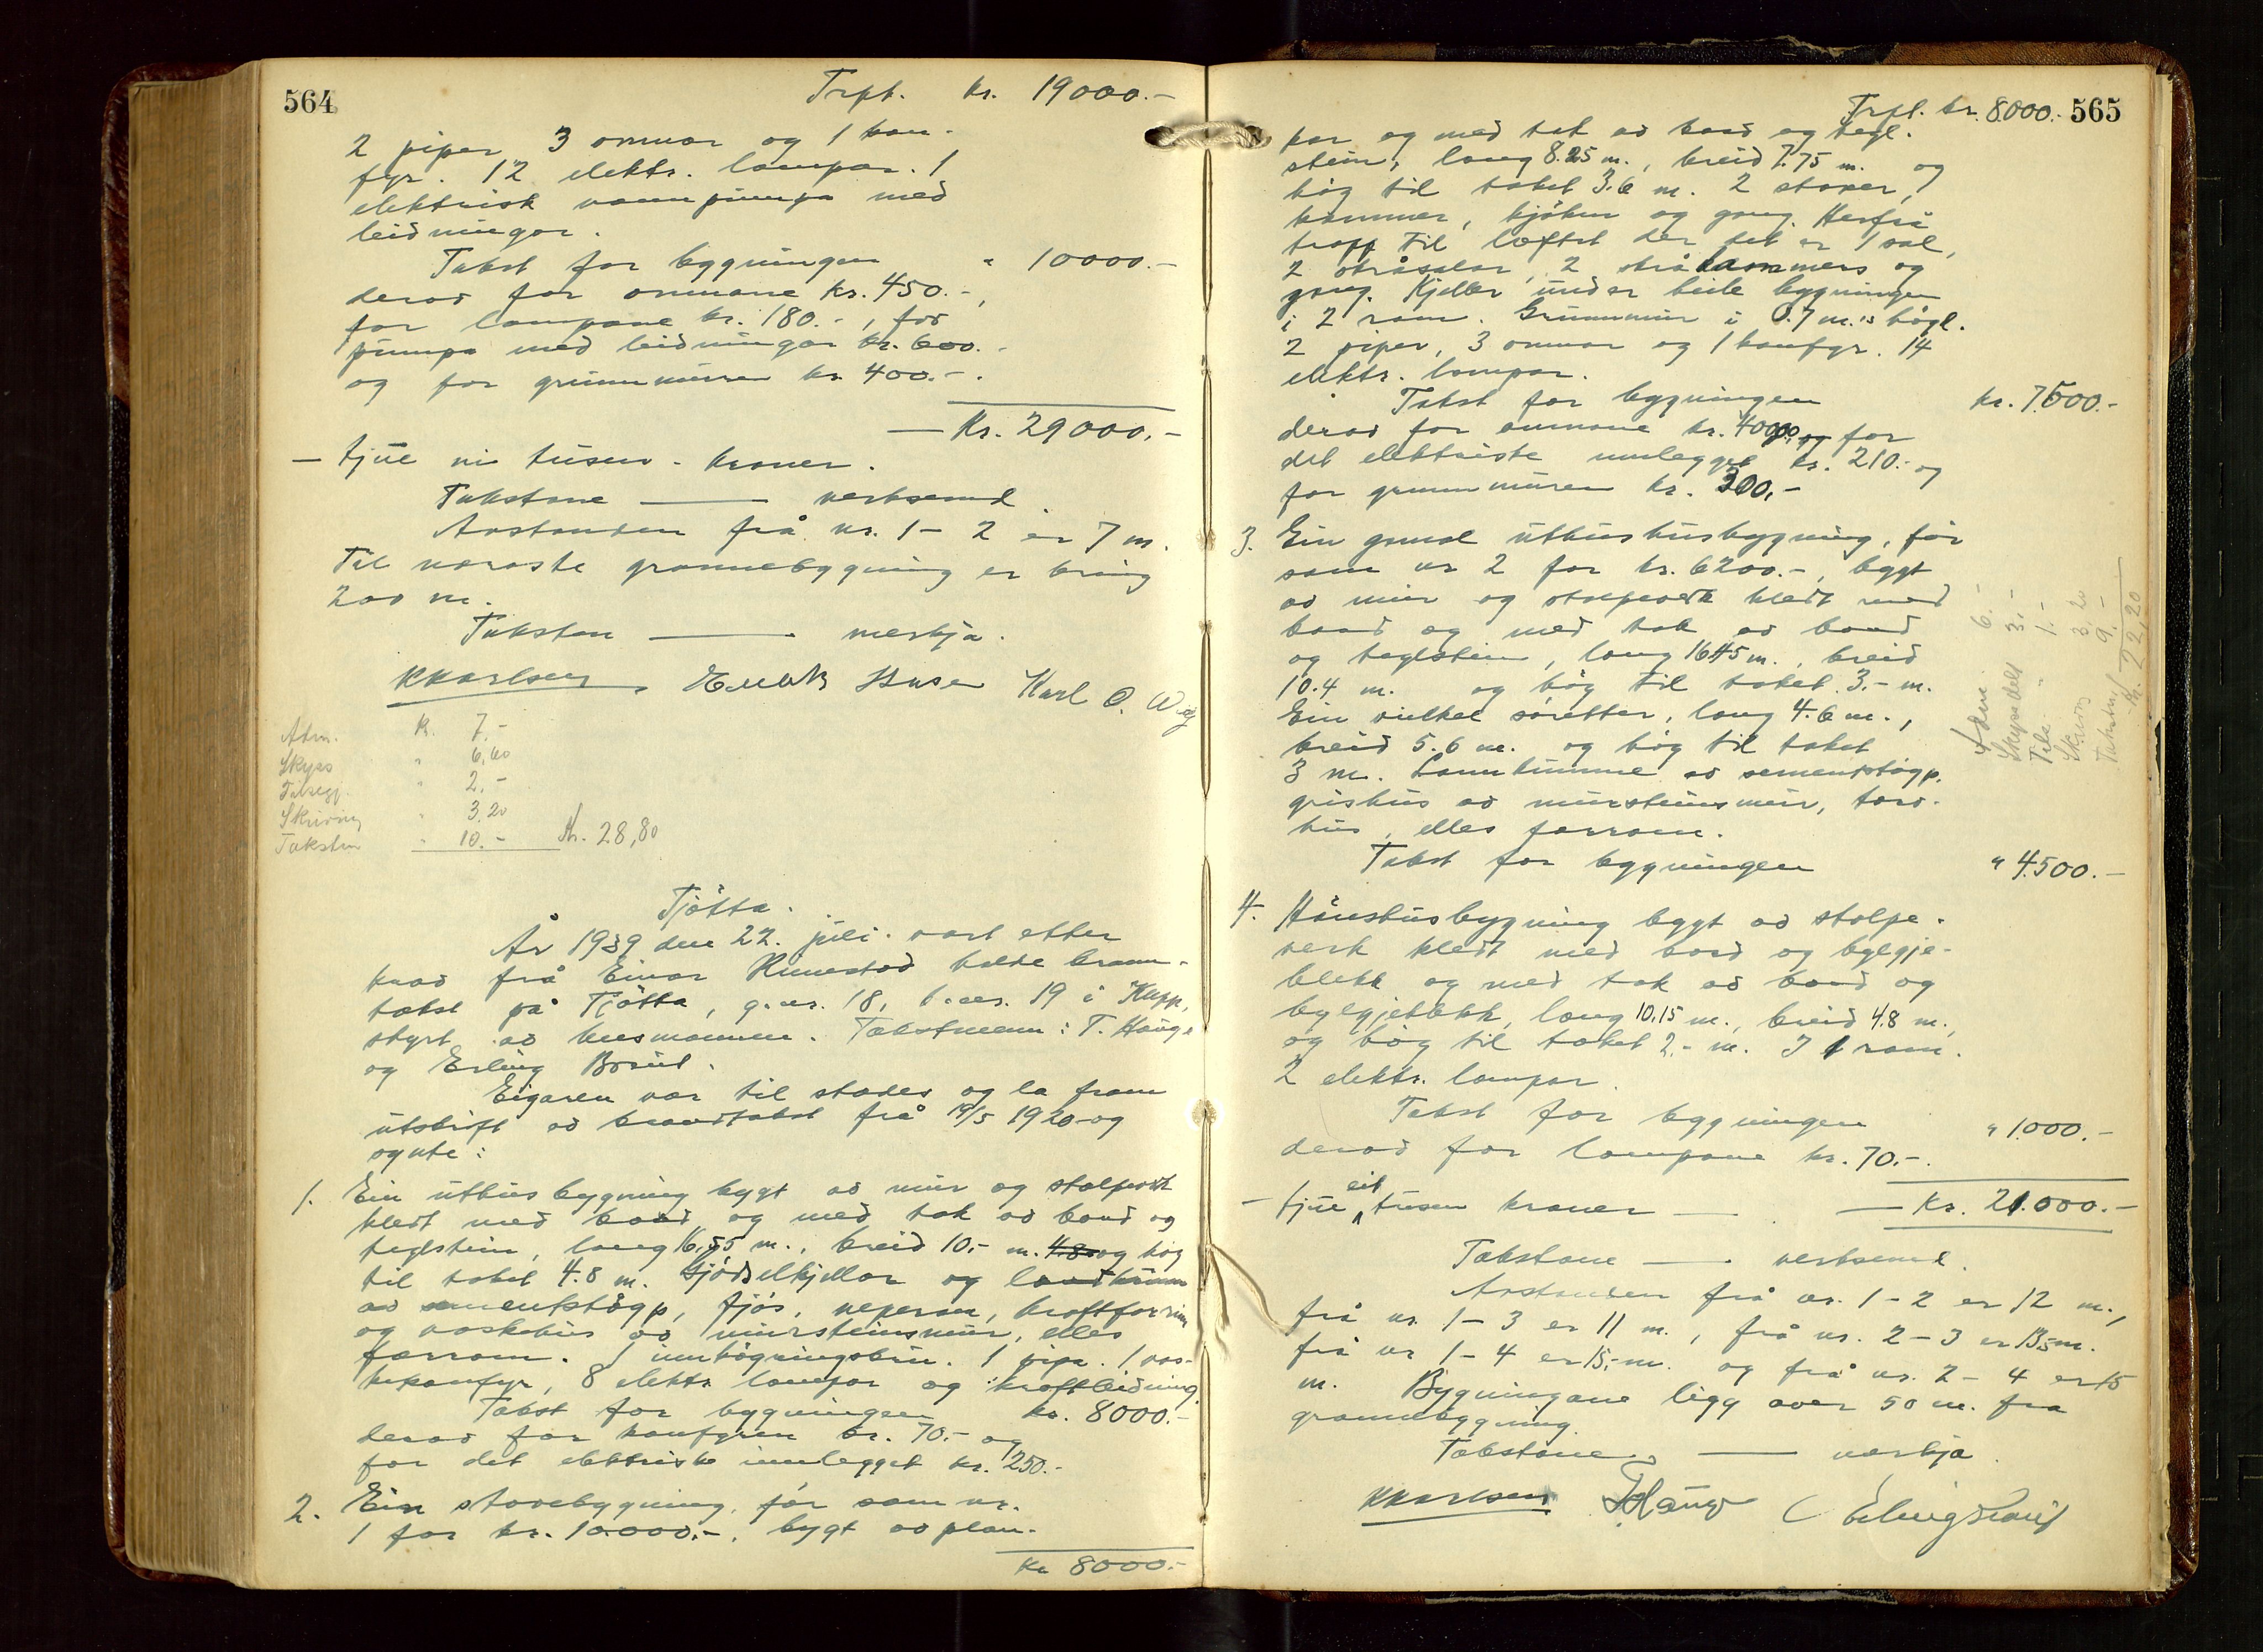 564
Trpt. kr. 19000.-
2 piper 3 omnar og 1 kom-
fyr. 12 elektr. lampar. 1
elektrisk vannpumpa med
leidningar.
Takst for bygningen " 10000.-
derav for omnane kr. 450.-,
for lampane kr. 180.-, for
pumpa med leidningar kr. 600.-
og for grunnmuren kr. 400.-.
— Kr. 29000.-
— tjue ni tusen - kroner.
Takstane — verksemd.
Avstanden frå nr. 1 - 2 er 7 m.
Til næraste grannebygning er kring
200 m.
Takstm — merkja.
KKarlsen, Husa Karl O.
Adm. K. 7.-
Skyss " 6,60
" 2,-
Skriving " 3,20
Takstm " 10.- Kr. 28,80
Tjøtta.
År 1939 den 22. juli vart etter
krav frå Einar Runestad halde brann-
takst på Tjøtta, g.nr. 18, b.nr. 19 i Klepp,
styrt av lensmannen. Takstmenn: T. Hauge
og Erling Braut.
Eigaren var til stades og la fram
utskrift av branntakst frå 19/5 1920 og
synte:
1. Ein uthusbygning bygt av mur og stolpeverk
kledt med bord og med tak av bord og
teglstein, lang 16,55 m., breid 10,- m. 4.8 og høg
til taket 4.8 m. Gjødselkjellar og landkumm
av sementstøyp, fjøs, neperom, kraftforrum
og vaskehus av mursteinsmur, elles
forrom. 1 innkøyringsbru. 1 pipe. 1 vas-
kekomfyr, 8 elektr. lampar og kraftleidning.
Takst for bygningen kr. 8000.-
derav for komfyren kr. 70.- og
for det elektriske innlegget kr. 250.-
2. Ein stovebygning, før som nr.
1 for kr. 10.000.-, bygt av plan-
Kr 8000.-
Trpt. kr. 8000.- 565
kar og med tak av bord og tegl-
stein, lang 8.25 m., breid 7.75 m. og
høg til taket 3.6 m. 2 stover,
kammer, kjøken og gang. Herfrå
trapp til loftet der det er 1 sal,
2 skråsalar, 2 skråkammers og
gang. Kjellar under heile bygningen
i 2 rom. Grunnmur i 0.7 m.s høgd.
2 piper, 3 omnar og 1 komfyr. 14
elektr. lampar.
Takst for bygningen kr. 7.500.-
derav for omnane kr. 400.- og for
det elektriske innlegget kr. 210.- og
for grunnmuren kr. 300.-
3. Ein gamal uthushusbygning, før
som nr 2 for kr. 6200.-, bygt
av mur og stolpeverk kledt med
bord og med tak av bord
og teglstein, lang 16.45 m., breid
10.4 m. og høg til taket 3.- m.
Ein vinkel søretter, lang 4.6 m.,
breid 5.6 m. og høg til taket
3 m. Lannkumme av sementstøyp,
grishus av mursteinsmur, torv-
hus, elles forrom.
Takst for bygningen " 4.500.-
6.-
Skyssdel 3,-
1.-
Skriving 3,20
Takstm 9.-
Kr. 22,20
4. Hønsehusbygning bygt av stolpe-
verk kledt med bord og bylgje-
blekk og med tak av bord og
bylgjeblekk, lang 10.15 m., breid 4.8 m.,
og høg til taket 2.- m. I 1 rom.
2 elektr. lampar.
Takst for bygningen " 1.000.-
derav for lampane kr. 70.-.
— tjue eit tusen kroner — — Kr. 21.000.-
Takstane — verksemd.
Avstanden frå nr. 1 - 2 er 12 m.,
frå nr. 1 - 3 er 11 m., frå nr. 2 - 3 er 13,5 m.
frå nr 1 - 4 er 15,- m. og frå nr. 2 - 4 er 15
m. Bygningane ligg over 50 m. frå
grannebygning.
Takstane — merkja.
KKarlsen THauge Erling Braut